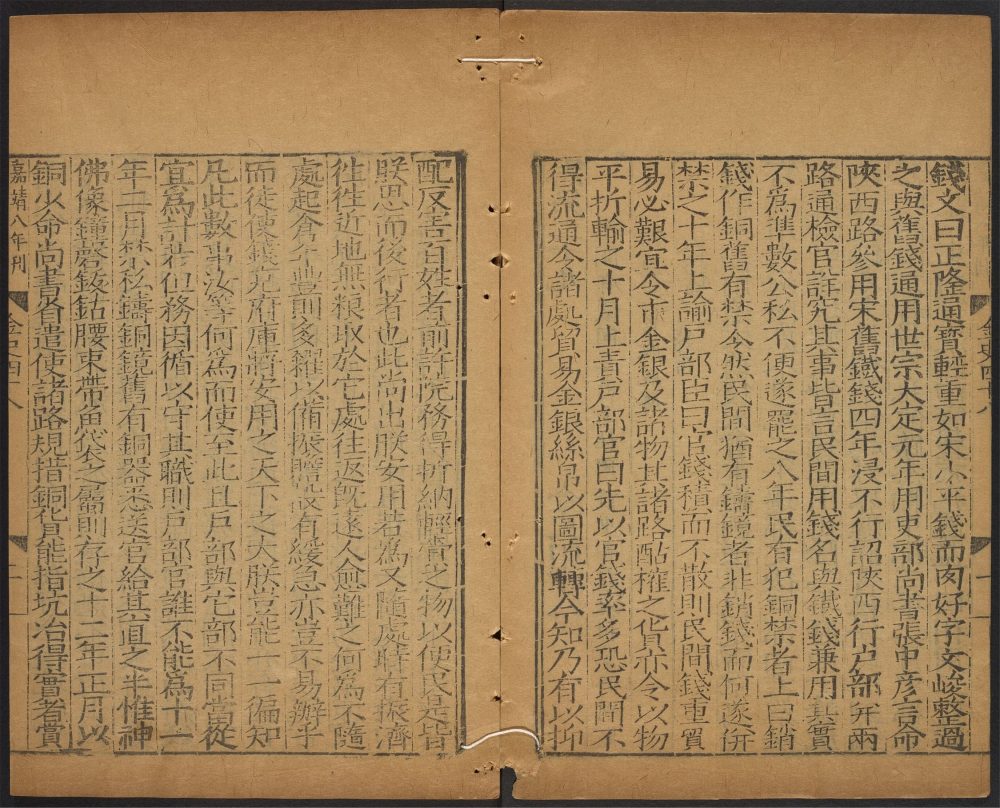 錢文曰正隆通寶輕重如宋小平錢而肉好字文峻整過
之與舊錢通用世宗大定元年用吏部尚書張中彦言命
陝西路參用宋舊鐵錢四年浸不行詔陝西行戶部并兩
路通檢官詳究其事皆言民間用錢名與鐵錢兼用其實
不爲準數公私不便遂罷之八年民有犯銅禁者上曰銷
錢作銅舊有禁令然民間猶有鑄鏡者非銷錢而何遂併
禁之十年上諭戶部臣曰官錢積而不散則民間錢重貿
易必艱宜令市金銀及諸物其諸路酤榷之貨亦令以物
平折輸之十月上責戶部官曰先以官錢率多恐民間不
得流通令諸處貿易金銀絲帛以圖流轉今知乃有以抑
配反害百姓者前許院務得折納輕賫之物以便民是皆
朕思而後行者也此尚出朕安用若爲又隨處時有振濟
往往近地無粮取於它處往返旣遠人愈難之何爲不隨
處起倉年豐則多糴以備振贍設有緩急亦豈不易辦乎
而徒使錢充府庫將安用之天下之大朕豈能一一徧知
凡此數事汝等何爲而使至此且戶部與它部不同當從
宜爲計若但務因循以守其職則戶部官誰不能爲十一
年二月禁私鑄銅鏡舊有銅器悉送官給其直之半惟神
佛像鐘磬鈸鈷腰束帶魚袋之屬則存之十二年正月以
銅少命尚書省遣使諸路規措銅貨能指坑冶得實者賞
嘉靖八年刊
金史四十八